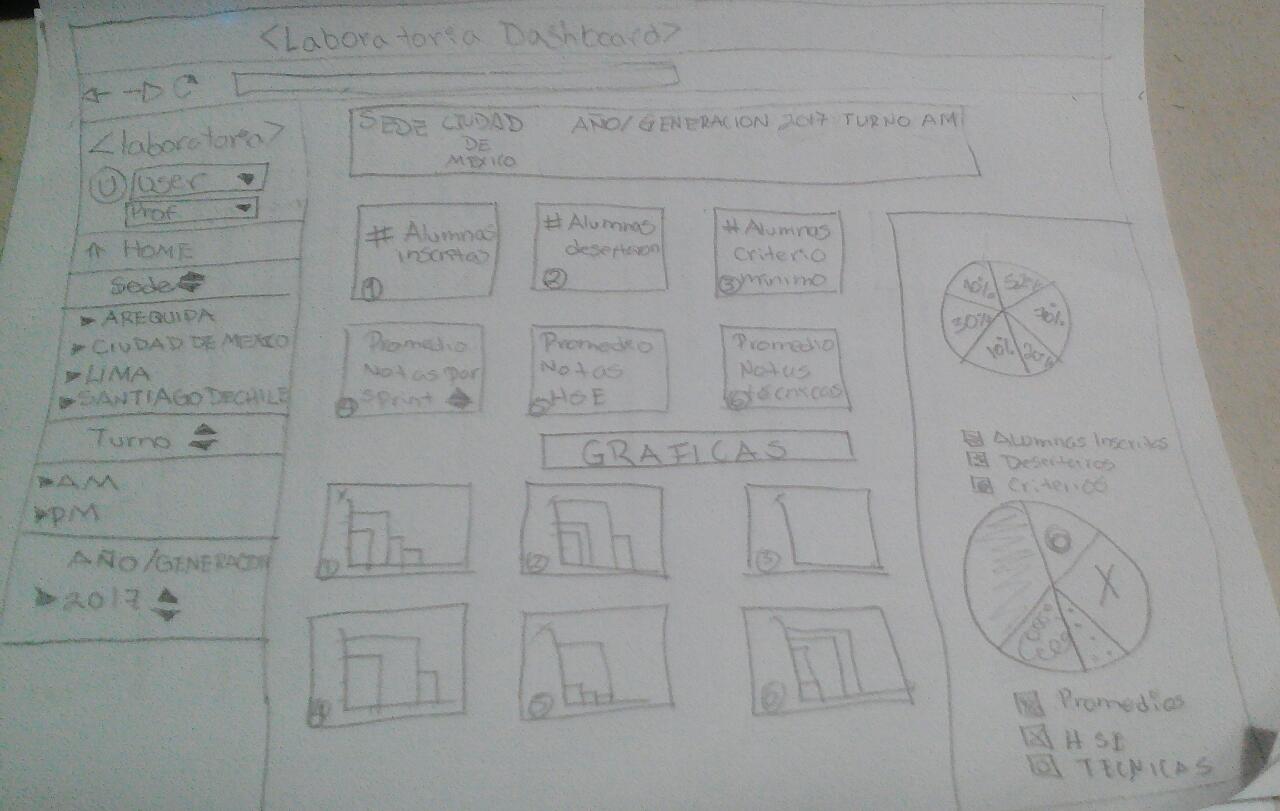 <Laboratoria Dashboard>
<laboratoria>
U User
Prof
HOME
Sede
AREQUIPA
CIUDAD DE MEXICO
LIMA
SANTIAGO DE CHILE
Turno
AM
PM
AÑO/GENERACION
2017
SEDE CIUDAD
DE
MEXICO
AÑO/GENERACION 2017 TURNO AM
# Alumnas
inscritas
1
# Alumnas
desertaron
2
# Alumnas
criterio
3 minimo
Promedio
Notas por
4 Sprint
Promedio
Notas
5 HSE
Promedio
Notas
6 técnicas
GRAFICAS
1
2
3
4
5
6
10% 52%
30% 70%
10% 20%
Alumnas Inscritas
Criterios
Promedios
X HSE
O TECNICAS